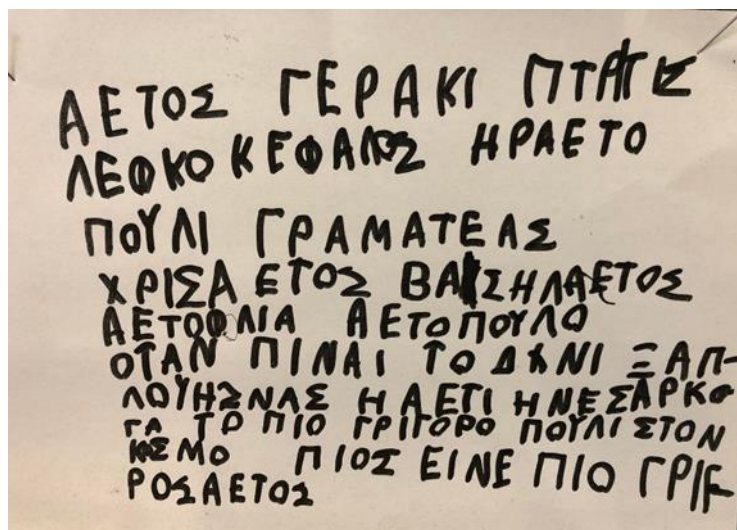 ΑΕΤΟΣ ΓΕΡΑΚΙ
ΛΕΦΚΟΚΕΦΑΛΟΣ ΗΡΑΕΤΟ
ΠΟΥΛΙ ΓΡΑΜΑΤΕΑΣ
ΧΡΙΣΑ ΕΤΟΣ ΒΑΣΗΛΑΕΤΟΣ
ΑΕΤΟΦΛΙΑ ΑΕΤΟΠΟΥΛΟ
ΟΤΑΝ ΠΙΝΑΙ ΤΟ
Η ΑΕΤΙ ΗΝΕ ΣΑΡΚΟ
ΓΑ ΤΟ ΠΙΟ ΓΡΙΓΟΡΟ ΠΟΥΛΙ ΣΤΟΝ
ΚΟΣΜΟ ΠΙΟΣ ΕΙΝΕ ΠΙΟ ΓΡΙΓ-
ΡΟΣ ΑΕΤΟΣ